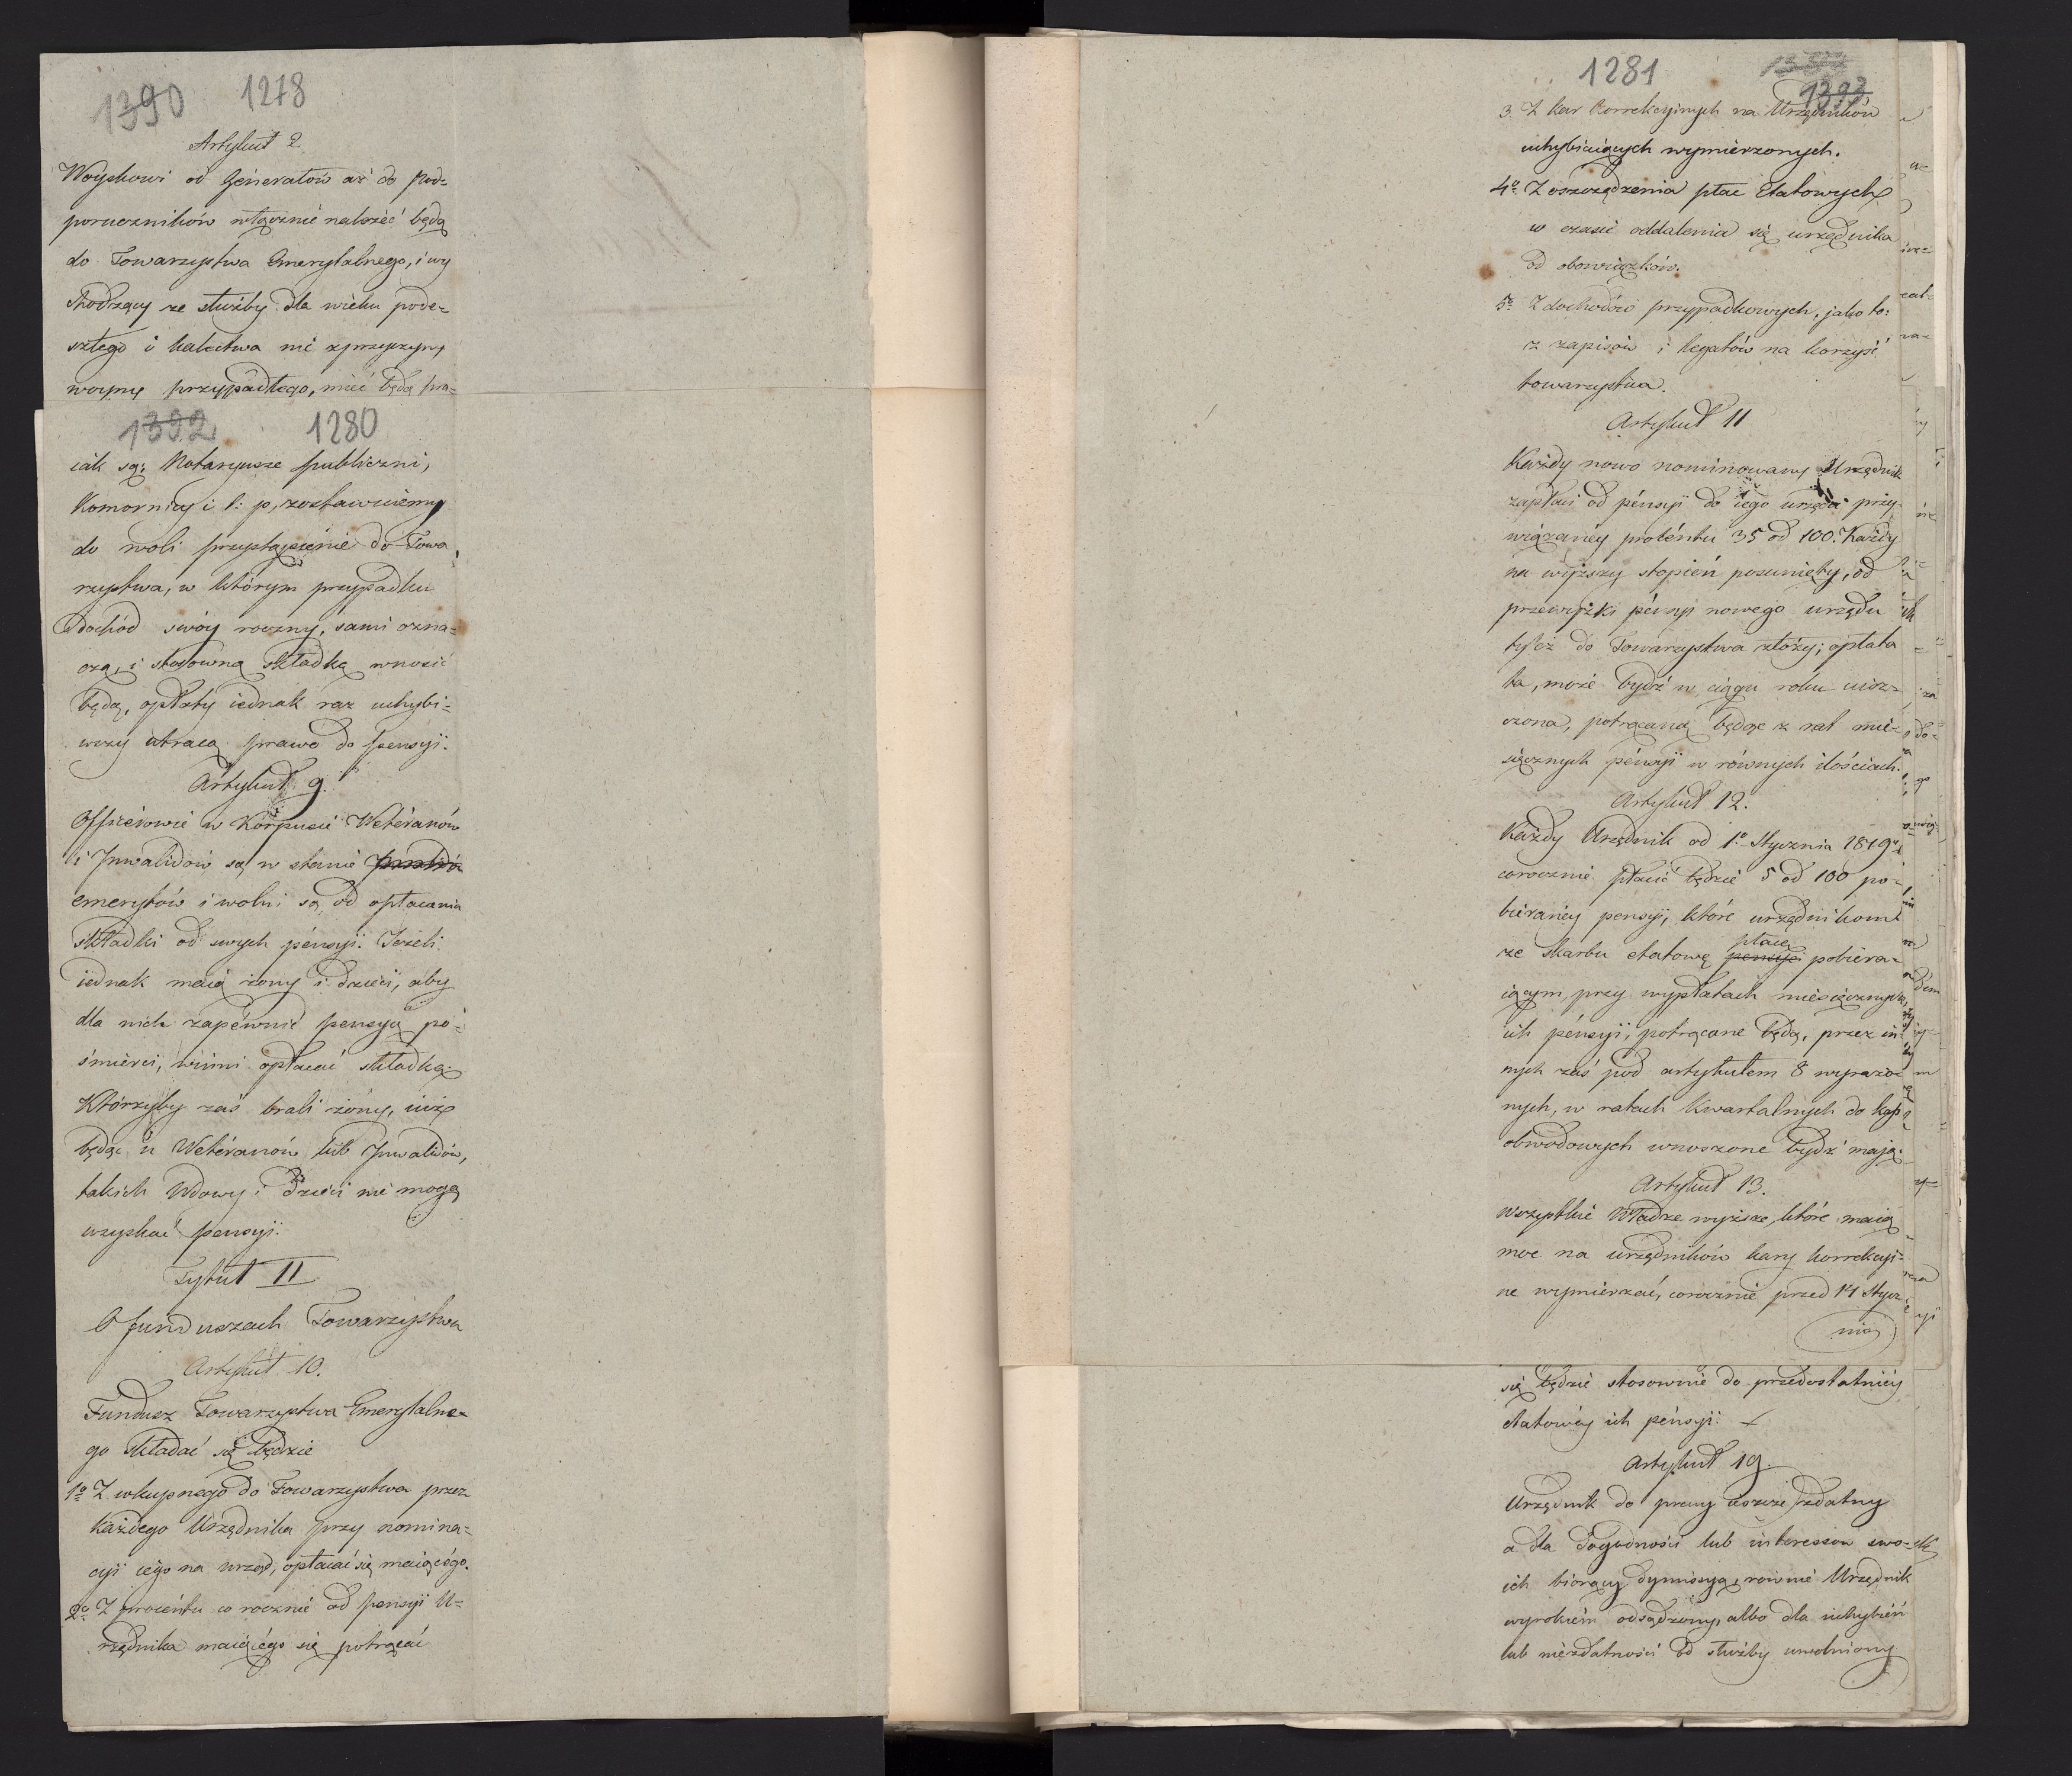 1390 1278
Artykuł 2.
Woyskowi od Generałów aż do Pod-
poruczników włącznie należeć będą
do Towarzystwa Emerytalnego, i wy
chodzący ze służby dla wieku pode-
szłego i kalectwa nie z przyczyny
woyny przypadłego, mieć będą pra-
1392 1280
iak są: Notaryusze publiczni,
Komornicy i t: p, zostawuiemy
do woli przystąpienie do Towa
rzystwa, w którym przypadku
dochód swóy roczny, sami ozna-
czą, i stosowną składkę wnosić
będą, opłaty iednak raz uchybi-
wszy utracą prawo do pensyi.
Artykuł 9.
Officerowie w Korpusie Weteranów
i Inwalidów są w stanie
emerytów i wolni są od opłacania
składki od swych pensyi. Jeżeli
iednak maią żony i dzieci, aby
dla nich zapewnić pensyą po
śmierci, winni opłacać składkę.
Którzyby zaś brali żony, iuż
będąc u Weteranów lub Inwalidów,
takich Wdowy i Dzieci nie mogą
uzyskać pensyi.
Tytuł II
O funduszach Towarzystwa
Artykuł 10.
Fundusz Towarzystwa Emerytalne-
go składać się będzie
1o Z wkupnego do Towarzystwa przez
każdego Urzędnika przy nomina-
cyi iego na urząd, opłacać się maiącego.
2o Z procentu co rocznie od pensyi U-
rzędnika maiącego się potrącać
1281 1393
3. Z kar korrekcyinych na Urzędników
uchybiaiących wymierzonych.
4o Z oszczędzenia płac etatowych
w czasie oddalenia się urzędnika
od obowiązków.
5o Z dochodów przypadkowych, jako to:
z zapisów i legatów na korzyść
towarzystwa.
Artykuł 11
Każdy nowo nominowany Urzędnik
zapłaci od pensyi do iego urzędu przy-
wiązaney procentu 35 od 100. Każdy
na wyższy stopień posunięty, od
przewyżki pensyi nowego urzędu
tyleż do Towarzystwa złoży; opłata
ta, może bydź w ciągu roku uisz-
czona, potrącaną będąc z rat mie-
sięcznych pensyi w równych ilościach.
Artykuł 12.
Każdy Urzędnik od 1o Stycznia 1819o
corocznie płacić będzie 5 od 100 po-
bieraney pensyi, które urzędnikom
płacę
ze skarbu etatową pensyę pobiera-
iącym, przy wypłatach miesięcznych
ich pensyi, potrącane będą, przez in
nych zaś pod artykułem 8 wyrażo
nych, w ratach kwartalnych do kass
obwodowych wnoszone bydź mają.
Artykuł 13.
Wszystkie Władze wyższe, które maią
moc na urzędników kary korrekcyi-
ne wymierzać, corocznie przed 14 Stycz
nia
się będzie stosownie do przedostatniey
etatowey ich pensyi.
Artykuł 19.
Urzędnik do pracy ieszcze zdatny
a dla dogodności lub interessów swo-
ich biorący dymissyą, rownie Urzędnik
wyrokiem odsądzony, albo dla uchybień
lub niezdatności od służby uwolniony